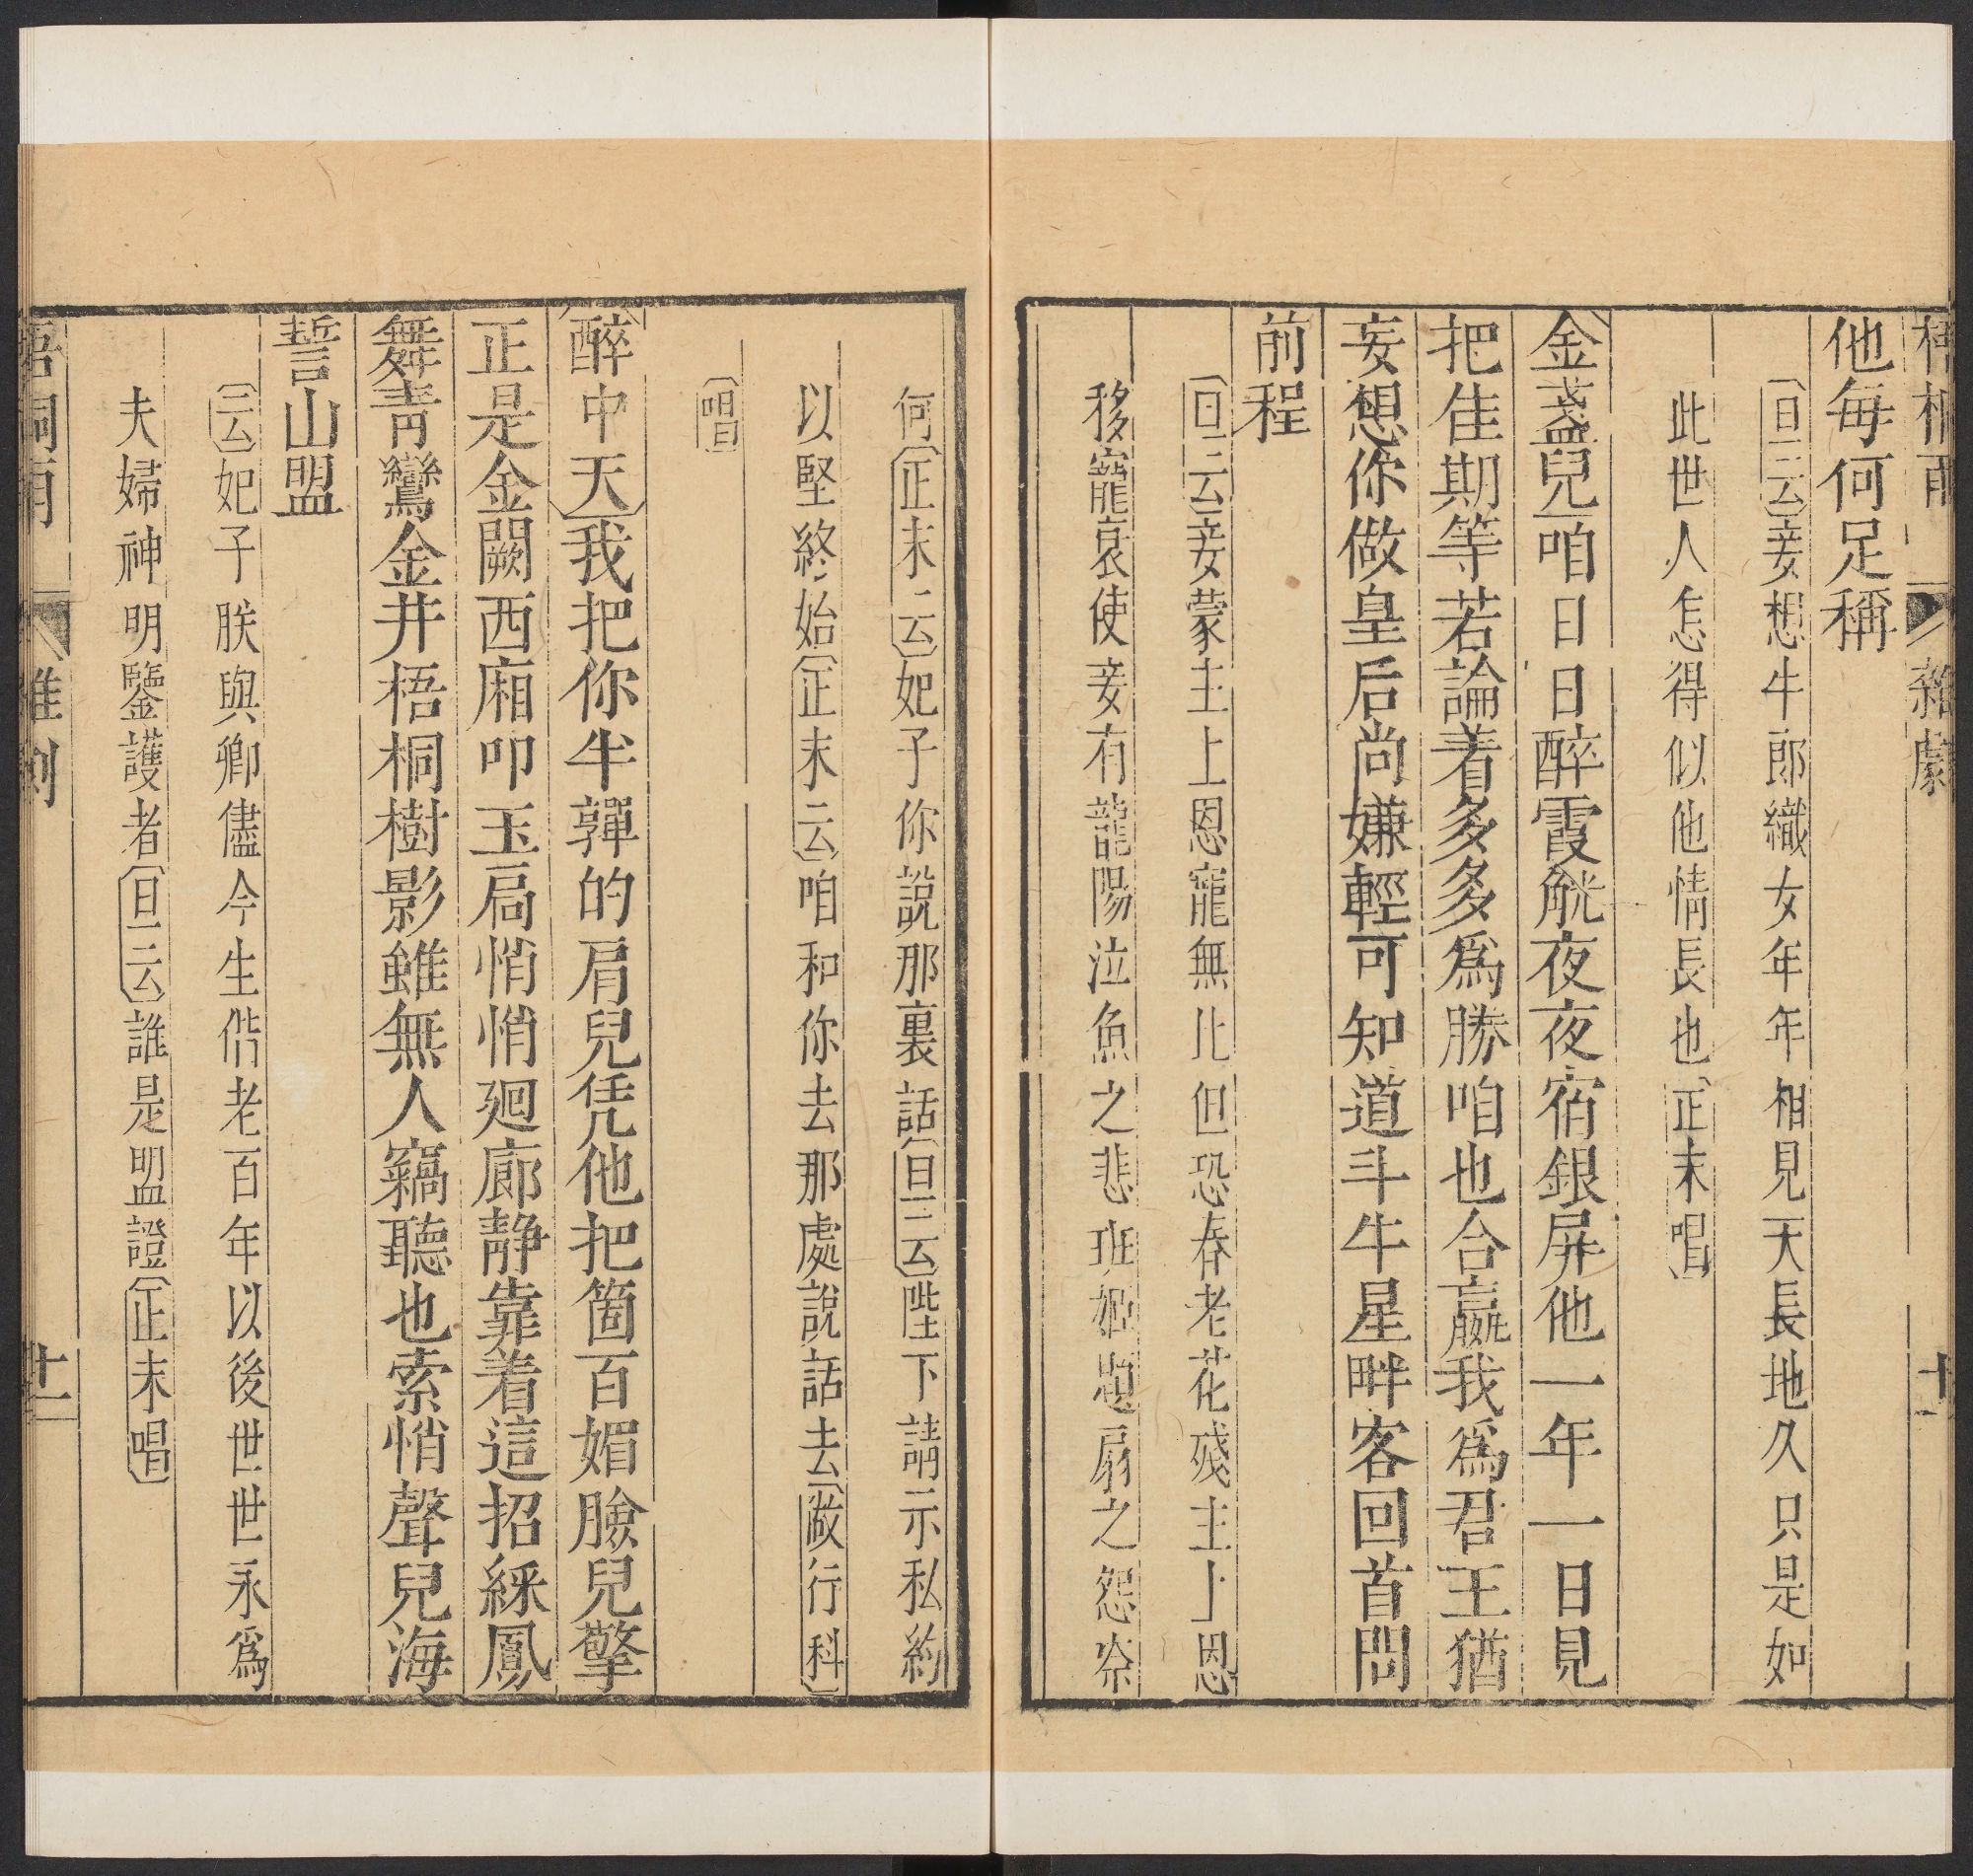 梧桐雨 雜劇 十
他每何足稱
〔旦云〕妾想牛郎織女年年相見天長地久只是如
此世人怎得似他情長也〔正末唱〕
金盞兒咱日日醉霞觥夜夜宿銀屏他一年一日見
把佳期等若論着多多爲勝咱也合贏我爲君王猶
妄想你做皇后尚嫌輕可知道斗牛星畔客回首問
前程
〔旦云〕妾蒙主上恩寵無比但恐春老花殘主上恩
移寵衰使妾有龍陽泣魚之悲班姬題扇之怨奈
何〔正末云〕妃子你說那裏話〔旦云〕陛下請示私約
以堅終始〔正末云〕咱和你去那處說話去〔做行科〕
〔唱〕
醉中天我把你半軃的肩兒凭他把箇百媚臉兒擎
正是金闕西廂叩玉局悄悄廻廊靜靠着這招綵鳳
舞青鸞金井梧桐樹影雖無人竊聽也索悄聲兒海
誓山盟
〔云〕妃子朕與卿儘今生偕老百年以後世世永爲
夫婦神明鑒護者〔旦云〕誰是盟證〔正末唱〕
梧桐雨 雜劇 十一